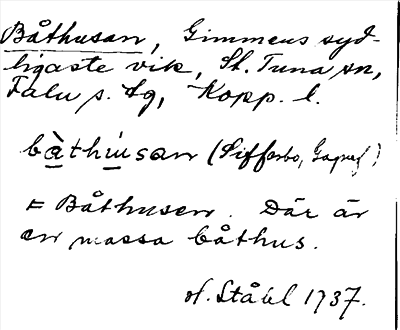 Båthusan, Gimmens syd-
ligaste vik, St. Tuna sn,
Falu s. tg, Kopp. l.
bàthùsan (Sifferbo, Gagnef)
= Båthusen. Där är
en massa båthus.
H. Ståhl 1937.